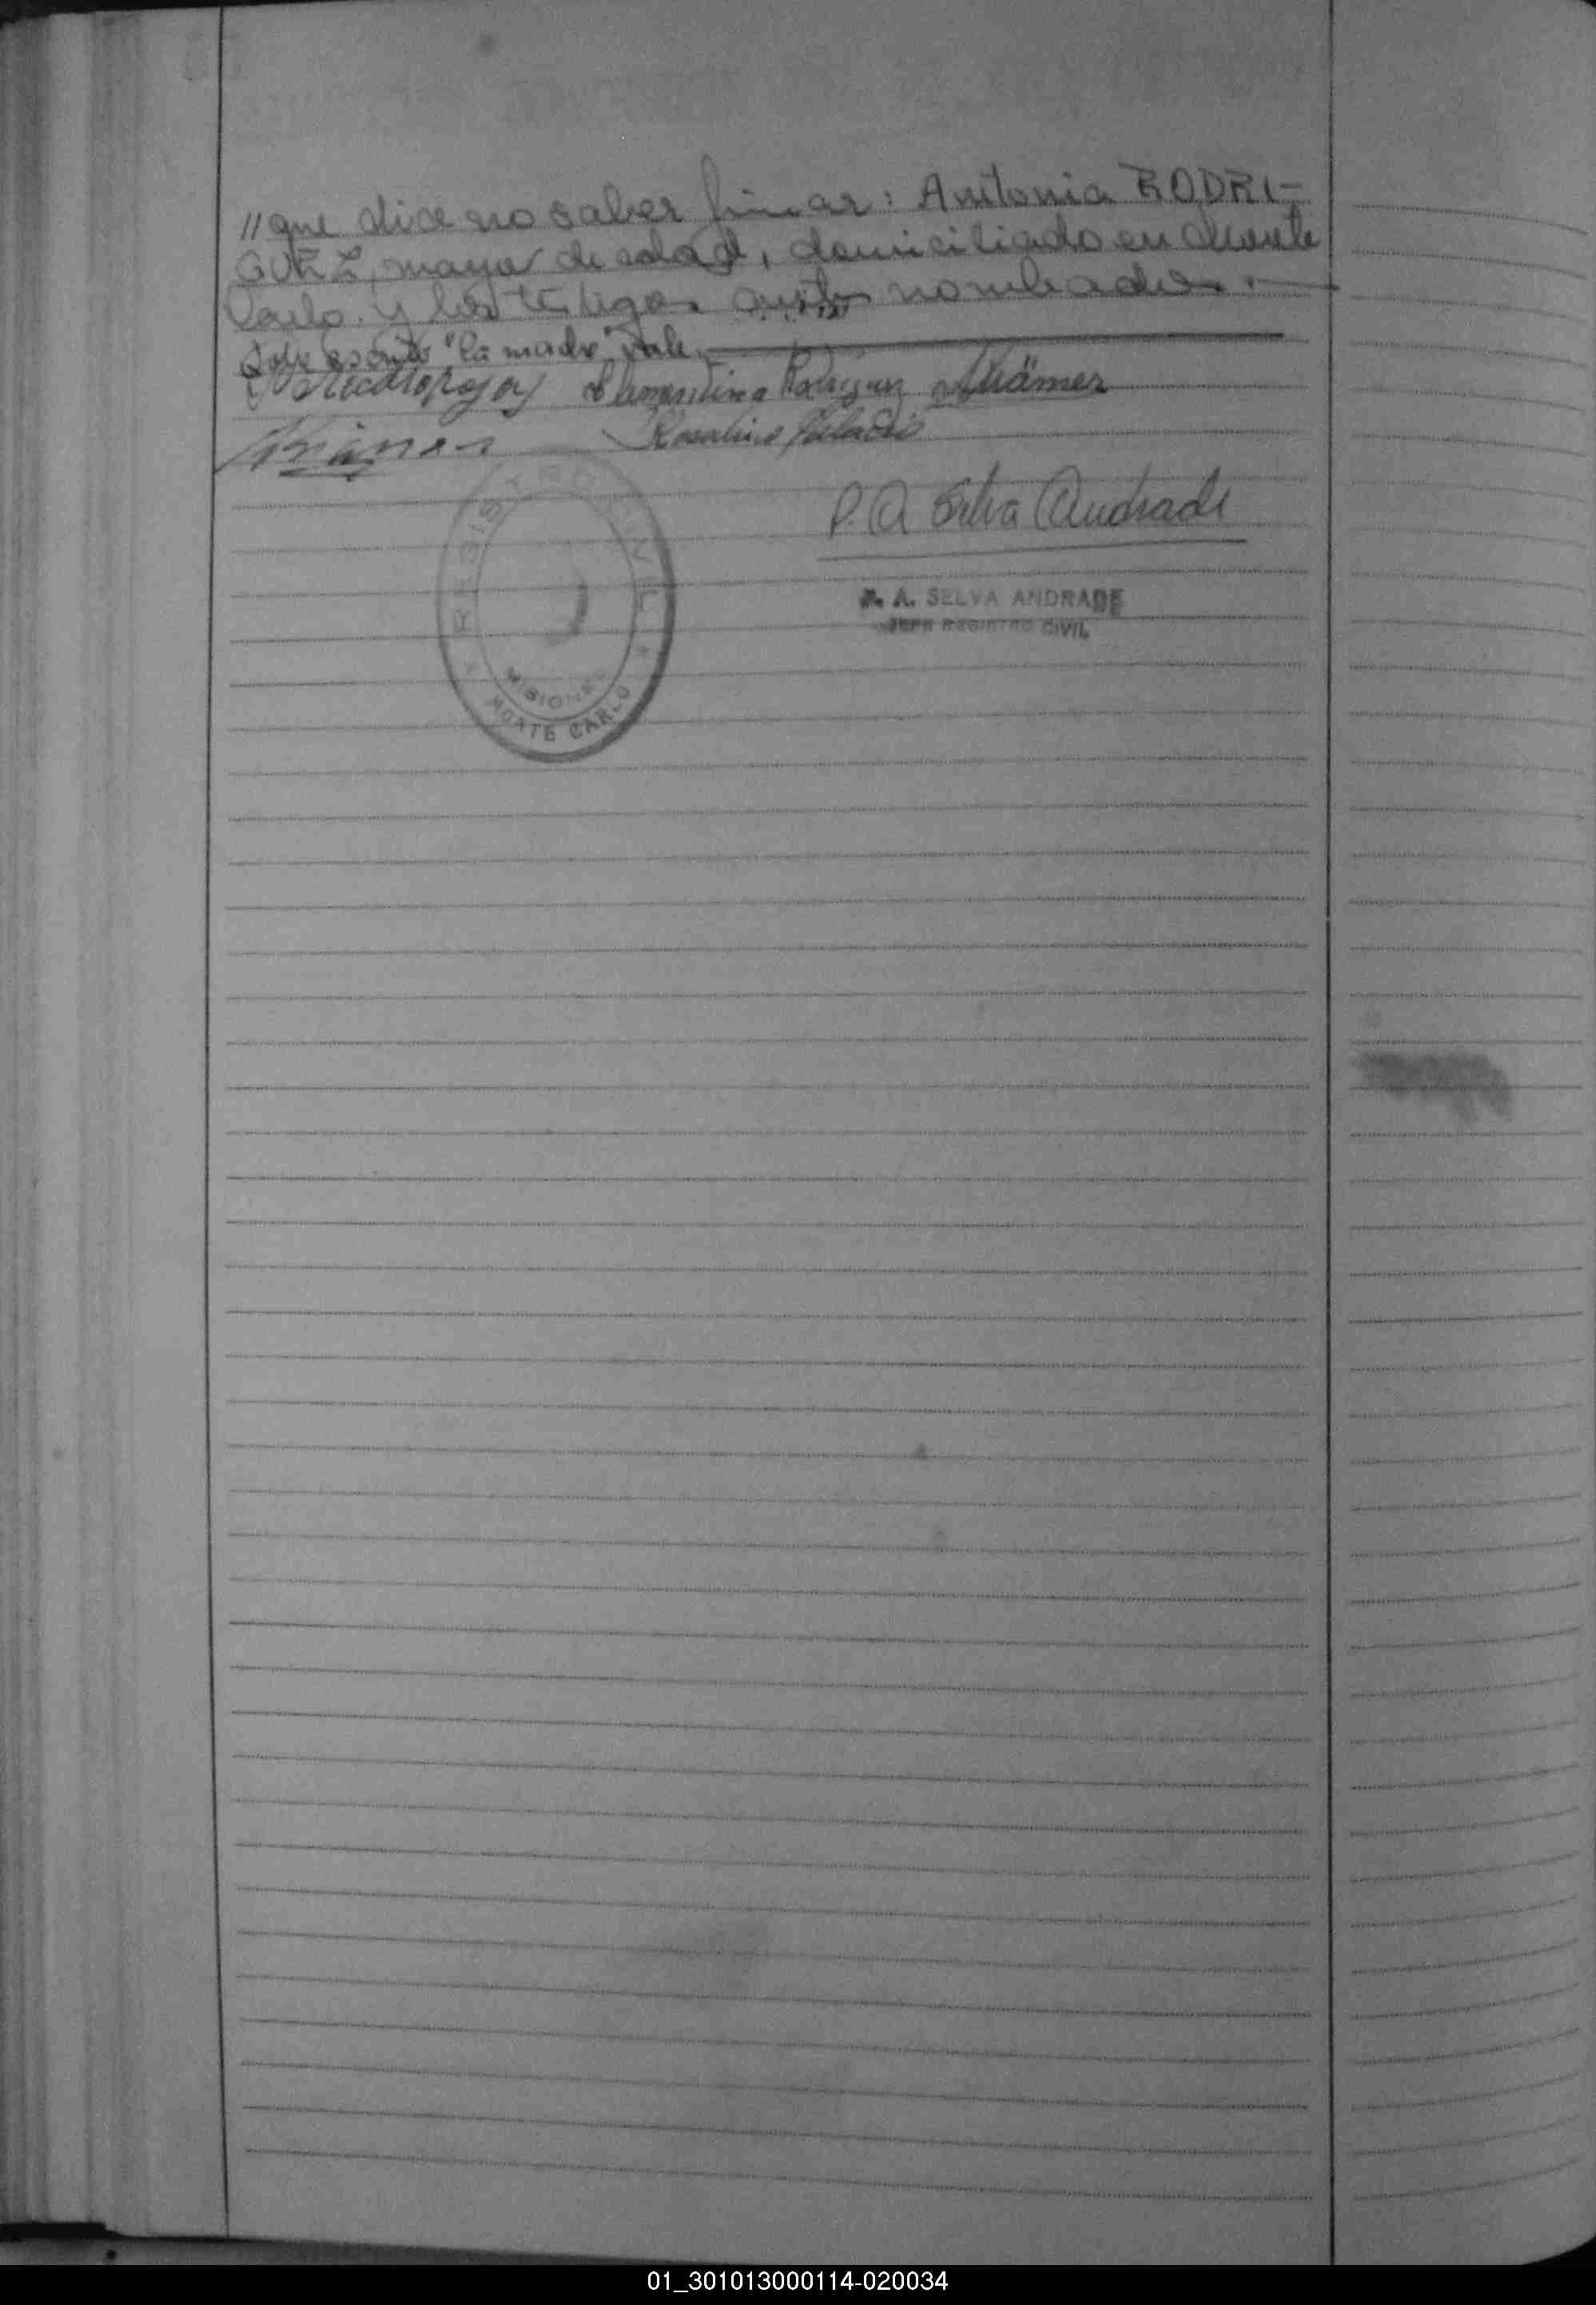 "que dice no saber firmar: Antonia RODRI-
GUEZ, mayor de edad, domiciliado en Monte
Carlo. y los testigos antes nombrados.
Sobre escrito "la madre" vale.
Clementina Rodriguez Krämer
Krämer Rosalino Palacio
P. A Selva Andrade
REGISTRO CIVIL
P. A. SELVA ANDRADE
JEFE REGISTRO CIVIL
MISIONES
MONTE CARLO
01_301013000114-020034